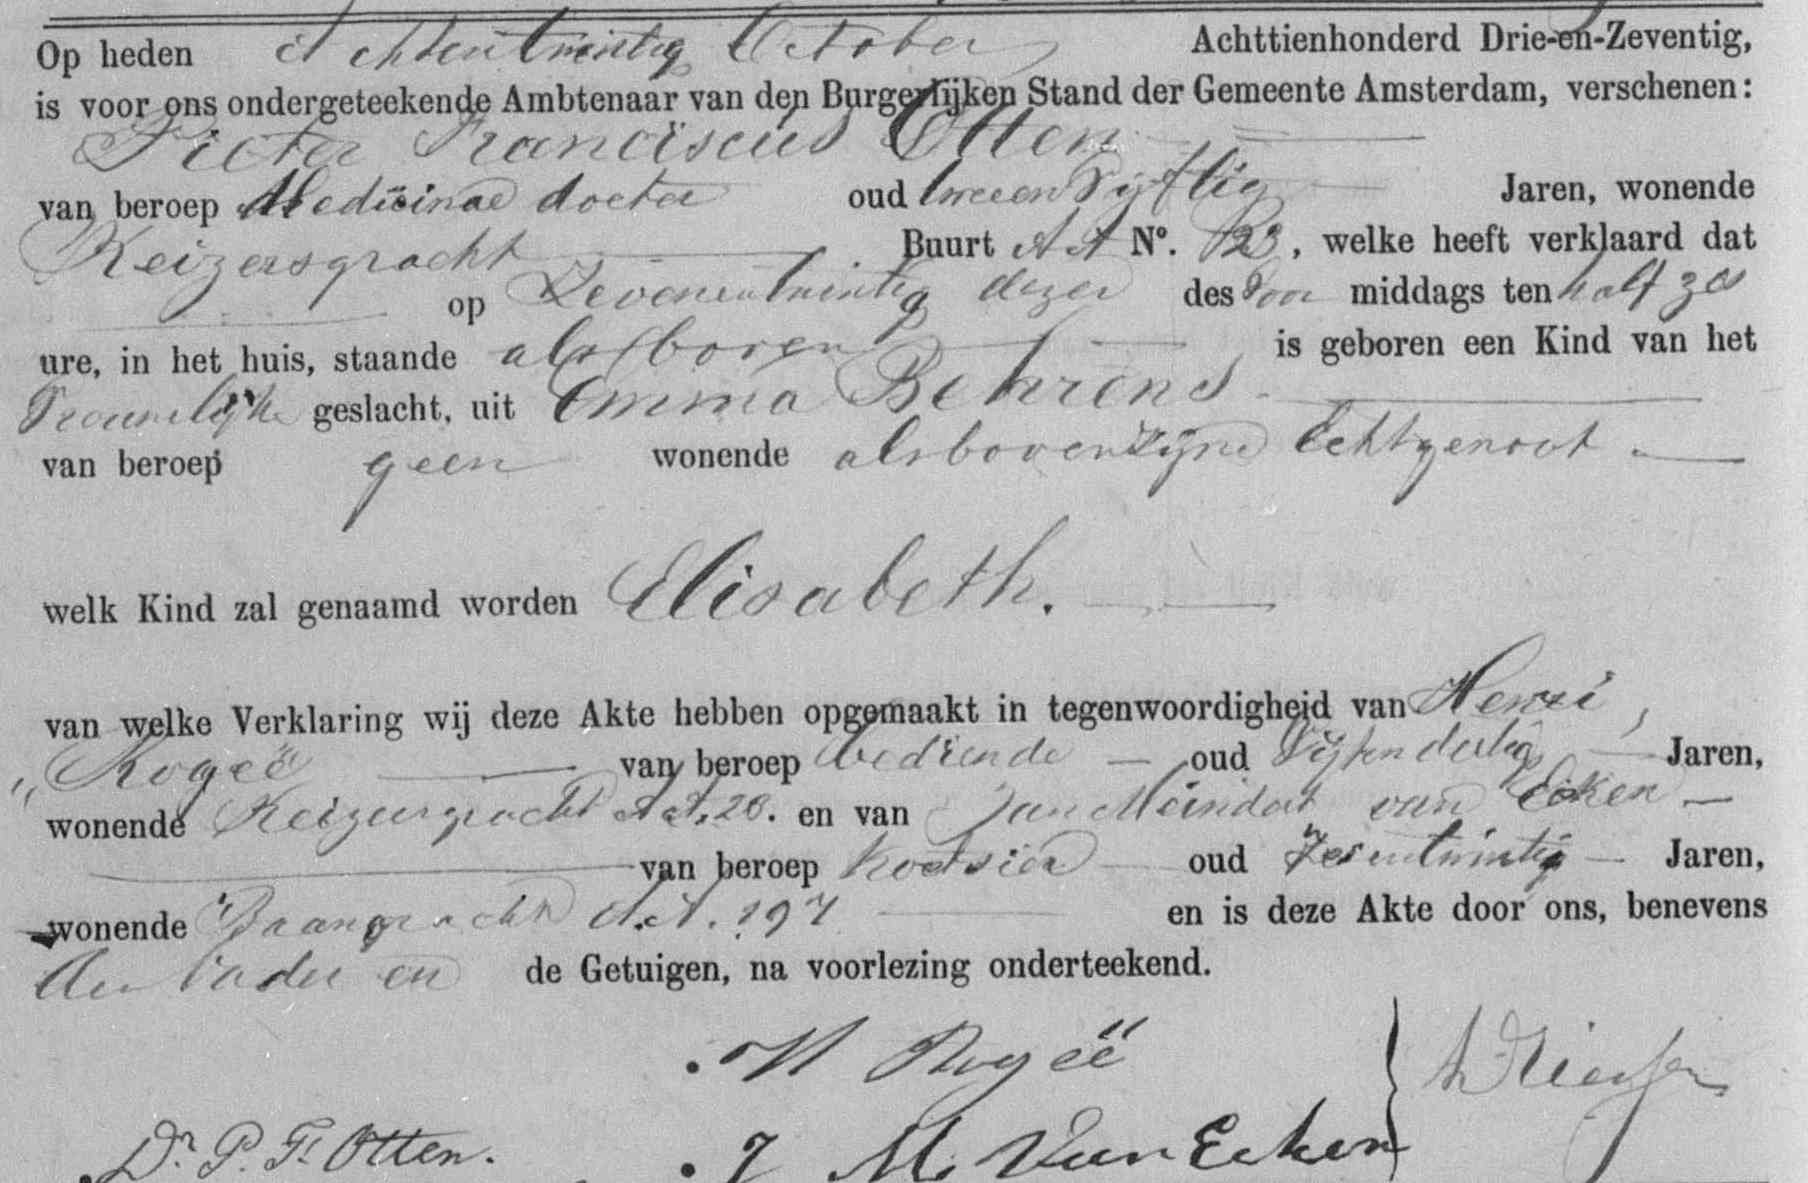 Op heden Achtentwintig October Achttienhonderd Drie-en-Zeventig,
is voor ons ondergeteekende Ambtenaar van den Burgerlijken Stand der Gemeente Amsterdam, verschenen:
Pieter Franciscus Otten
van beroep Medicinae doctor oud tweeenvijftig Jaren, wonende
Keizersgracht Buurt AA No. 123, welke heeft verklaard dat
op Zevenentwintig dezer des voor middags ten half zes
ure, in het huis, staande alsboven is geboren een Kind van het
Vrouwelijke geslacht, uit Emma Behrens
van beroep geen wonende alsboven zijne Echtgenoot
welk Kind zal genaamd worden Elisabeth.
van welke Verklaring wij deze Akte hebben opgemaakt in tegenwoordigheid van Henri
Rogeë van beroep bediende oud Vijfendertig Jaren,
wonende Keizersgracht AA.28. en van Jan Meindert van Ecken
van beroep koetsier oud Zesentwintig Jaren,
wonende Baangracht AA. 197 en is deze Akte door ons, benevens
den Vader en de Getuigen, na voorlezing onderteekend.
H Rogeë
Dr. P. F. Otten. J M. Van Ecken